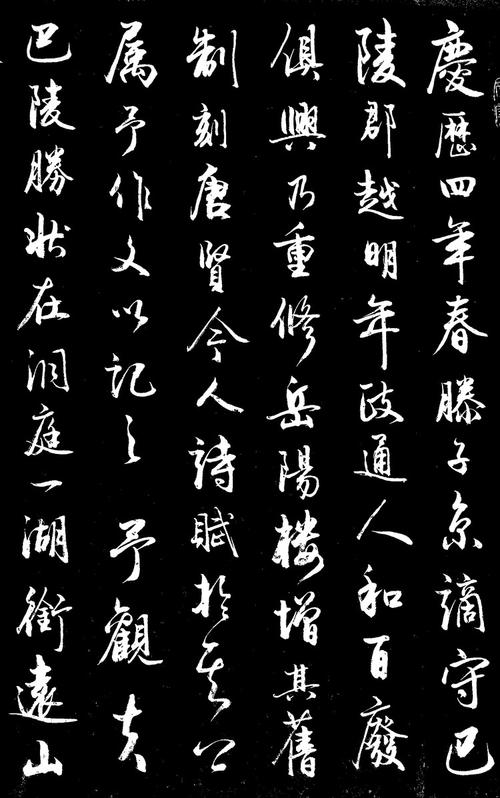 慶歷四年春滕子京謫守巴
陵郡越明年政通人和百廢
俱興乃重修岳陽楼增其舊
制刻唐賢今人詩賦於其上
属予作文以記之 予觀夫
巴陵勝狀在洞庭一湖銜遠山